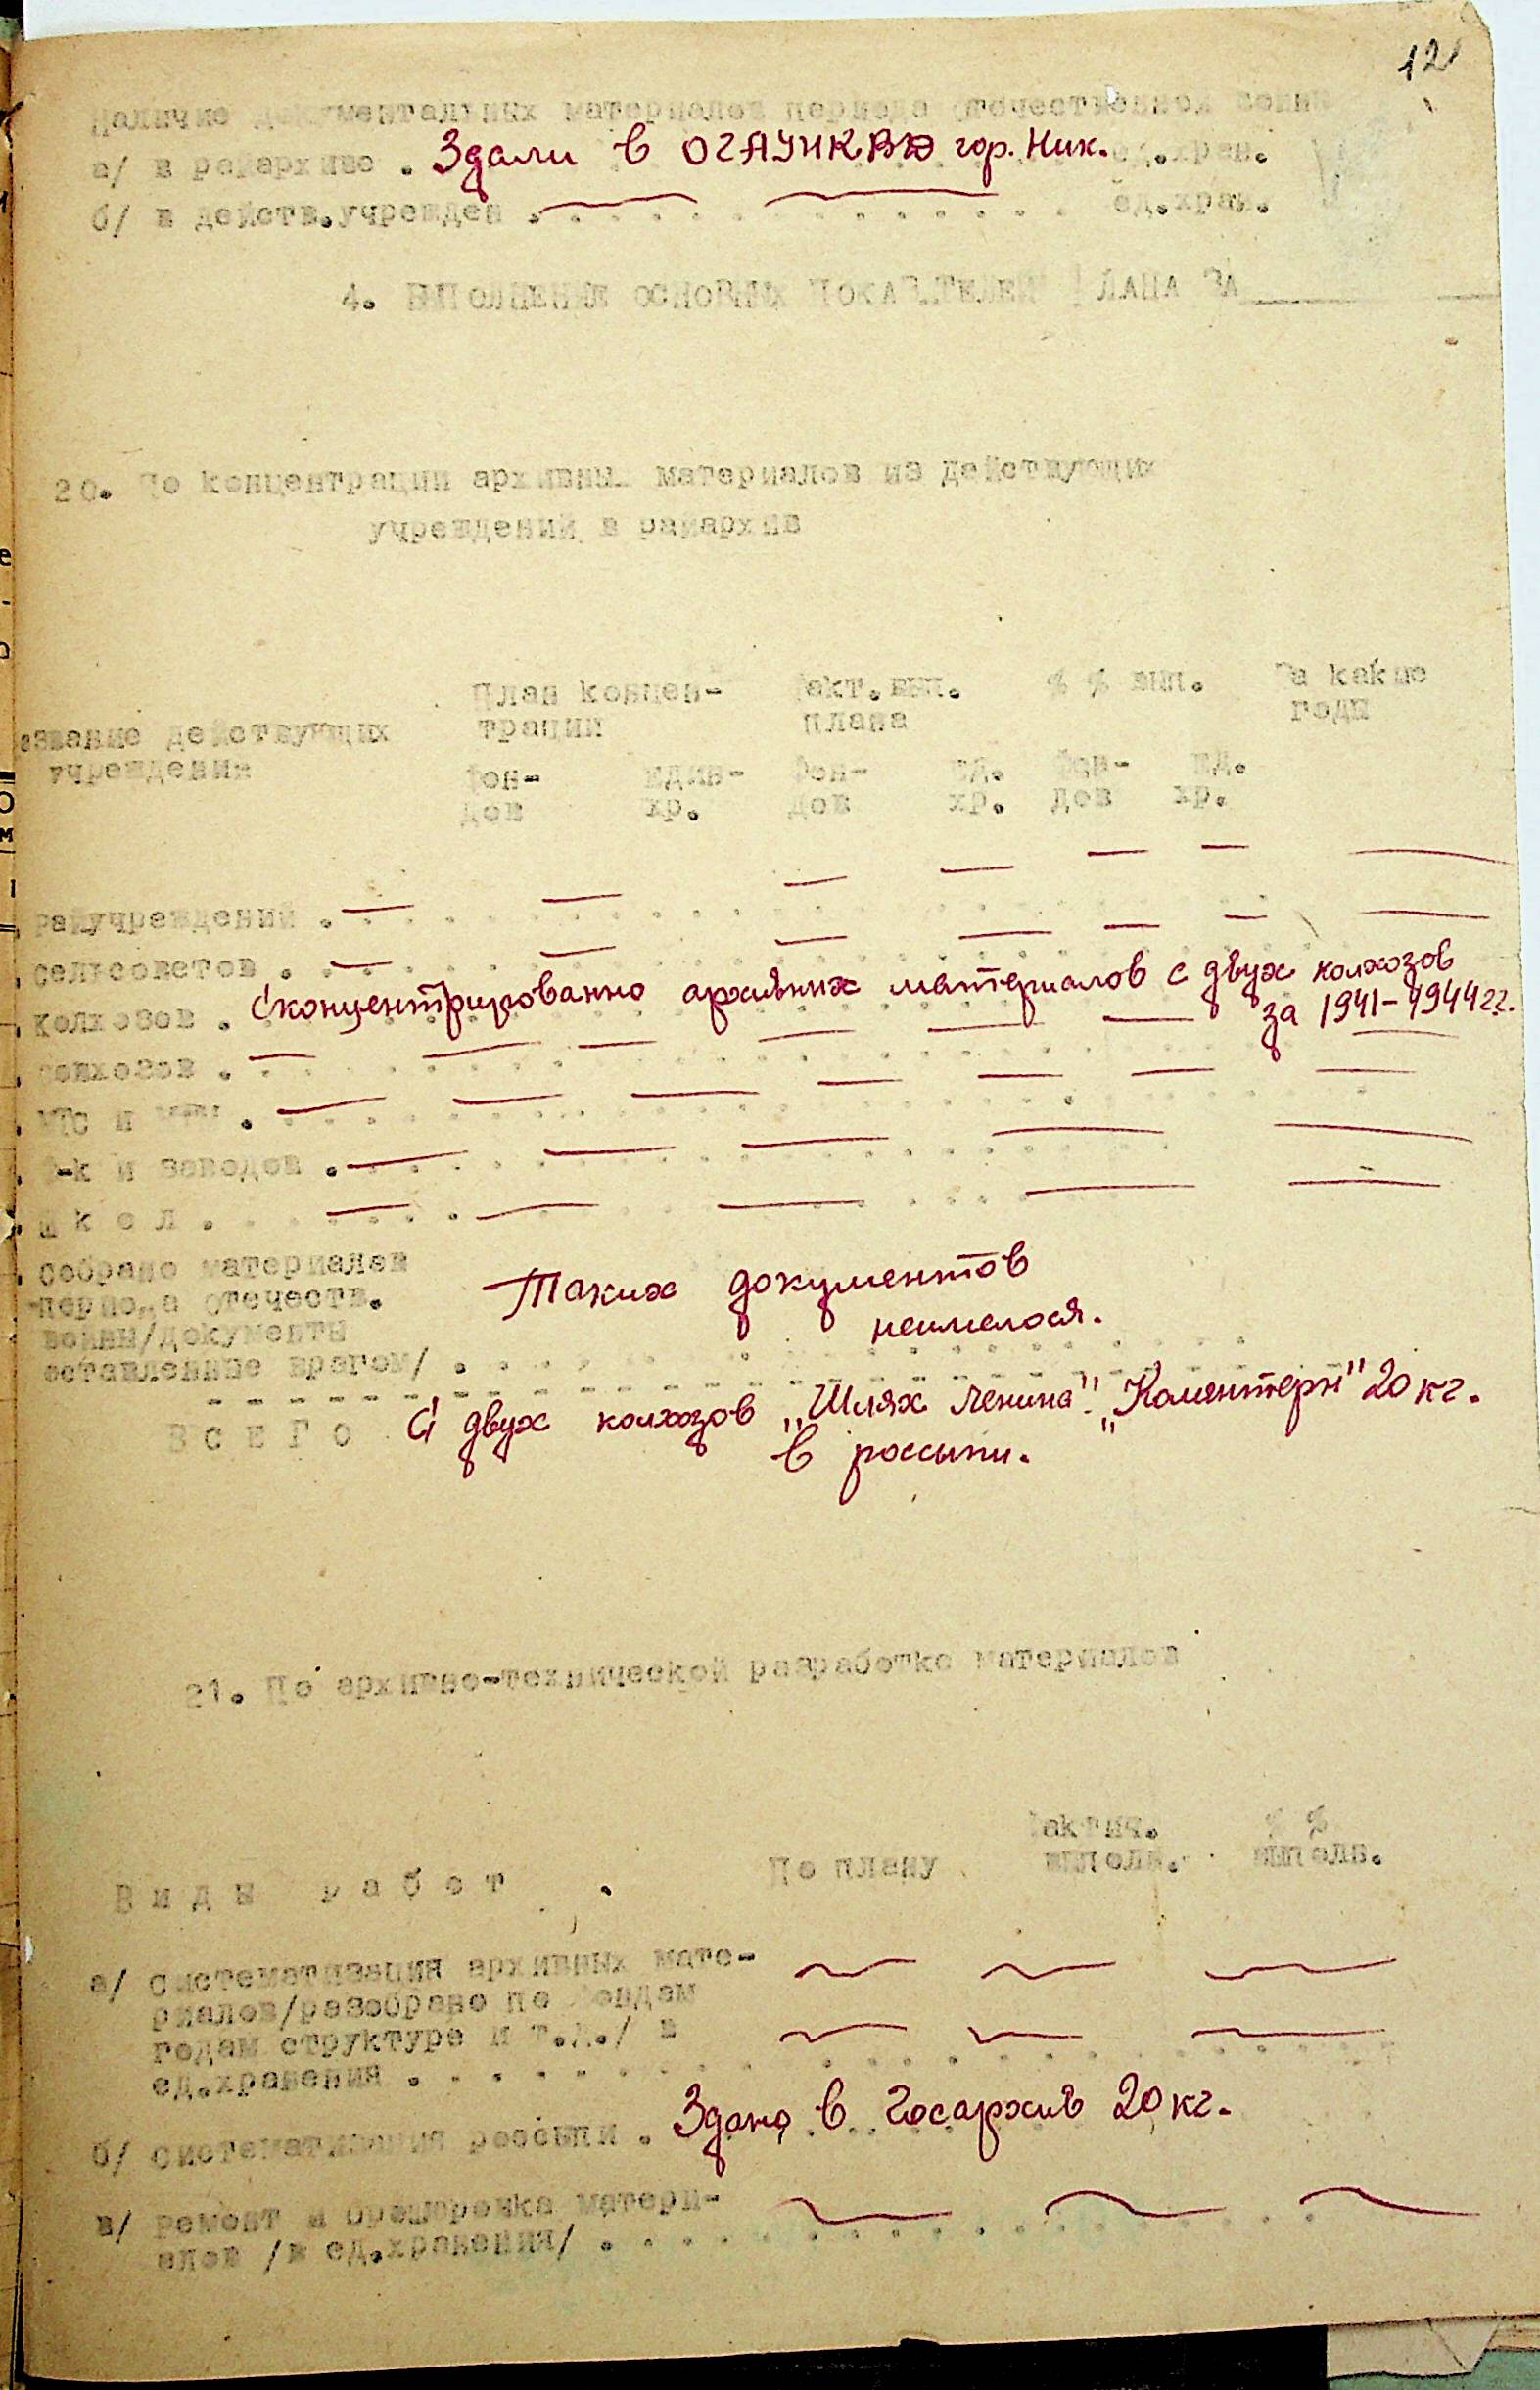 12
Наличие документальных материалов периода Отечественной войны
а/ в райархиве . Здали в ОГАУНКВД гор. Ник. ед.хран.
б/ в действ.учрежден . . . . . . ед.хран.
4. ВЫПОЛНЕНИЕ ОСНОВНЫХ ПОКАЗАТЕЛЕЙ ПЛАНА ЗА
20. По концентрации архивных материалов из действующих
учреждений в райархив
План концен- Факт.вып. % % вып. За какие
трации плана годы
звание действующих
учреждений
фон- един- фон- ед. фон- ед.
дов хр. дов хр. дов хр.
Райучреждений . — — — — — — —
сельсоветов . — — — — — — —
колхозов . Сконцентрированно архивних материалов с двух колхозов
за 1941-1944гг.
совхозов . — — — — — — —
МТС и . — — — — — — —
ф-к и заводов . — — — — —
Ш к о л . — — — — —
Собрано материалов
периода Отечеств.
войны/документы
оставленные врагом/ .
Таких документов
неимелося.
В С Е Г О С двух колхозов „Шлях Ленина". „Коментерн" 20 кг.
в россипи.
21. По архивно-технической разработке материалов
Фактич. % %
Виды работ По плану выполн. выполн.
а/ Систематизация архивных мате-
риалов/разобрано по фондам
годам структуре и т.д./ в
ед.хранения .
б/ Систематизация россыпи . Здано в Госархив 20 кг.
в/ Ремонт и брошюровка матери-
алов /в ед.хранения/ .